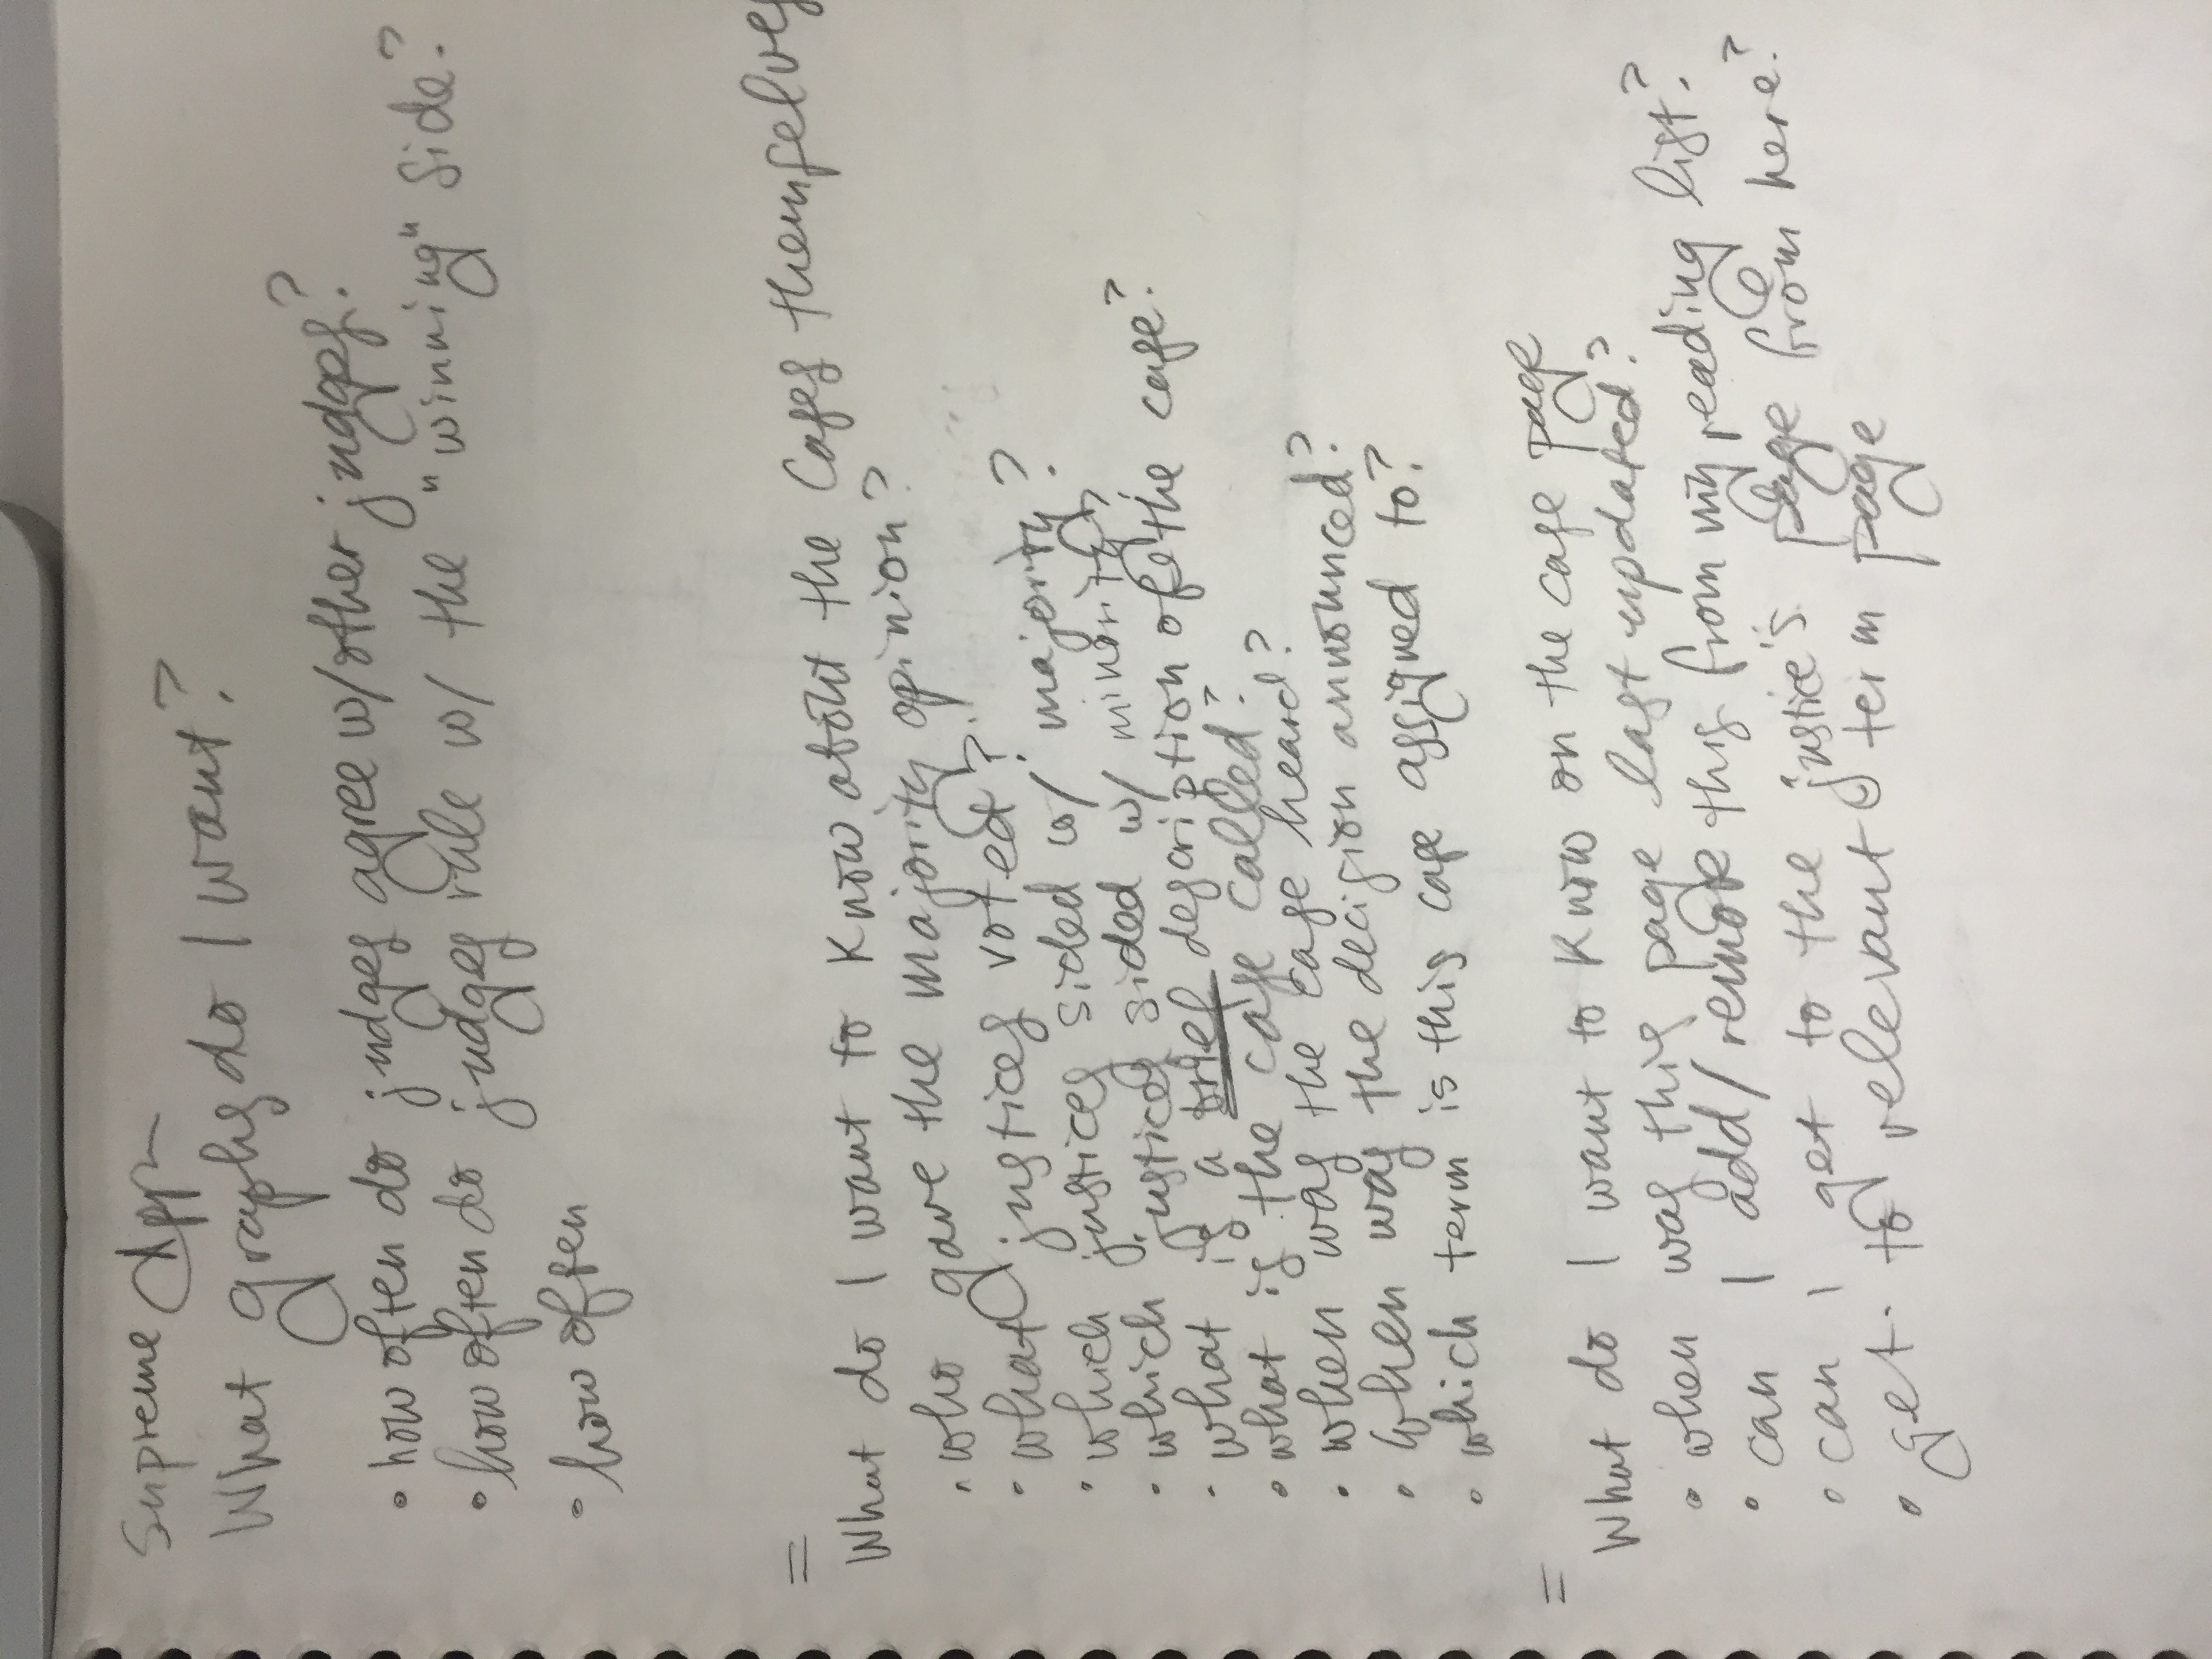 Supreme App
What graphs do I want?
• how often do judges agree w/other judges?
• how often do judges rule w/ the "winning" side?
• how often
=
What do I want to know about the Cases themselves
• who gave the majority opinion?
• what justices voted?
• which justices sided w/ majority?
• which justices sided w/ minority?
• what is a brief description of the case?
• what is the case called?
• when was the case heard?
• When was the decision announced?
• which term is this case assigned to?
=
What do I want to know on the case page
• when was this page last updated?
• can I add/remove this from my reading list?
• can I get to the justice's page from here?
• get to relevant term page